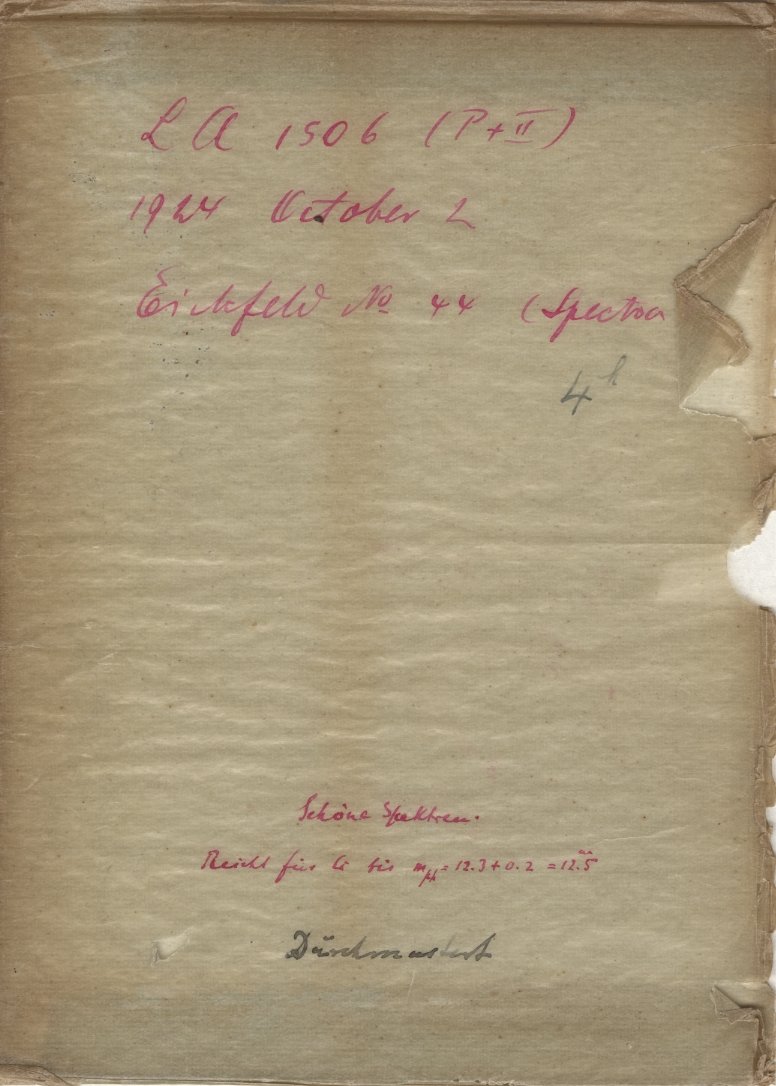 LA 1506 (P+II)
1924 October 2
Eichfeld No 44 (Spectra
4h
Schöne Spektren.
Reicht für G bis mph = 12.3 + 0.2 = 12.5
Durchmustert